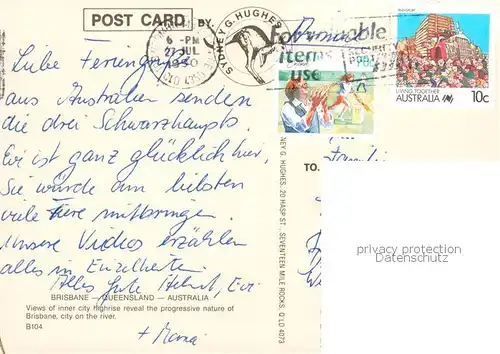 POST CARD
BY
SYDNEY G. HUGHES
6 - PM
27 JUL
For
items
use
LIVING TOGETHER
AUSTRALIA 10c
Liebe Feriengrüße
aus Australien senden
die drei Schwarzhaupts.
Evi ist ganz glücklich hier,
Sie würde am liebsten
viele Tiere mitbringen.
Unsere Videos erzählen
alles in Einzelheiten.
Alles Gute Helmut, Evi
+ Maria
BRISBANE — QUEENSLAND — AUSTRALIA
Views of inner city highrise reveal the progressive nature of
Brisbane, city on the river.
B104
NEY G. HUGHES. 20 HASP ST., SEVENTEEN MILE ROCKS. Q'LD 4073
TO.
privacy protection
Datenschutz